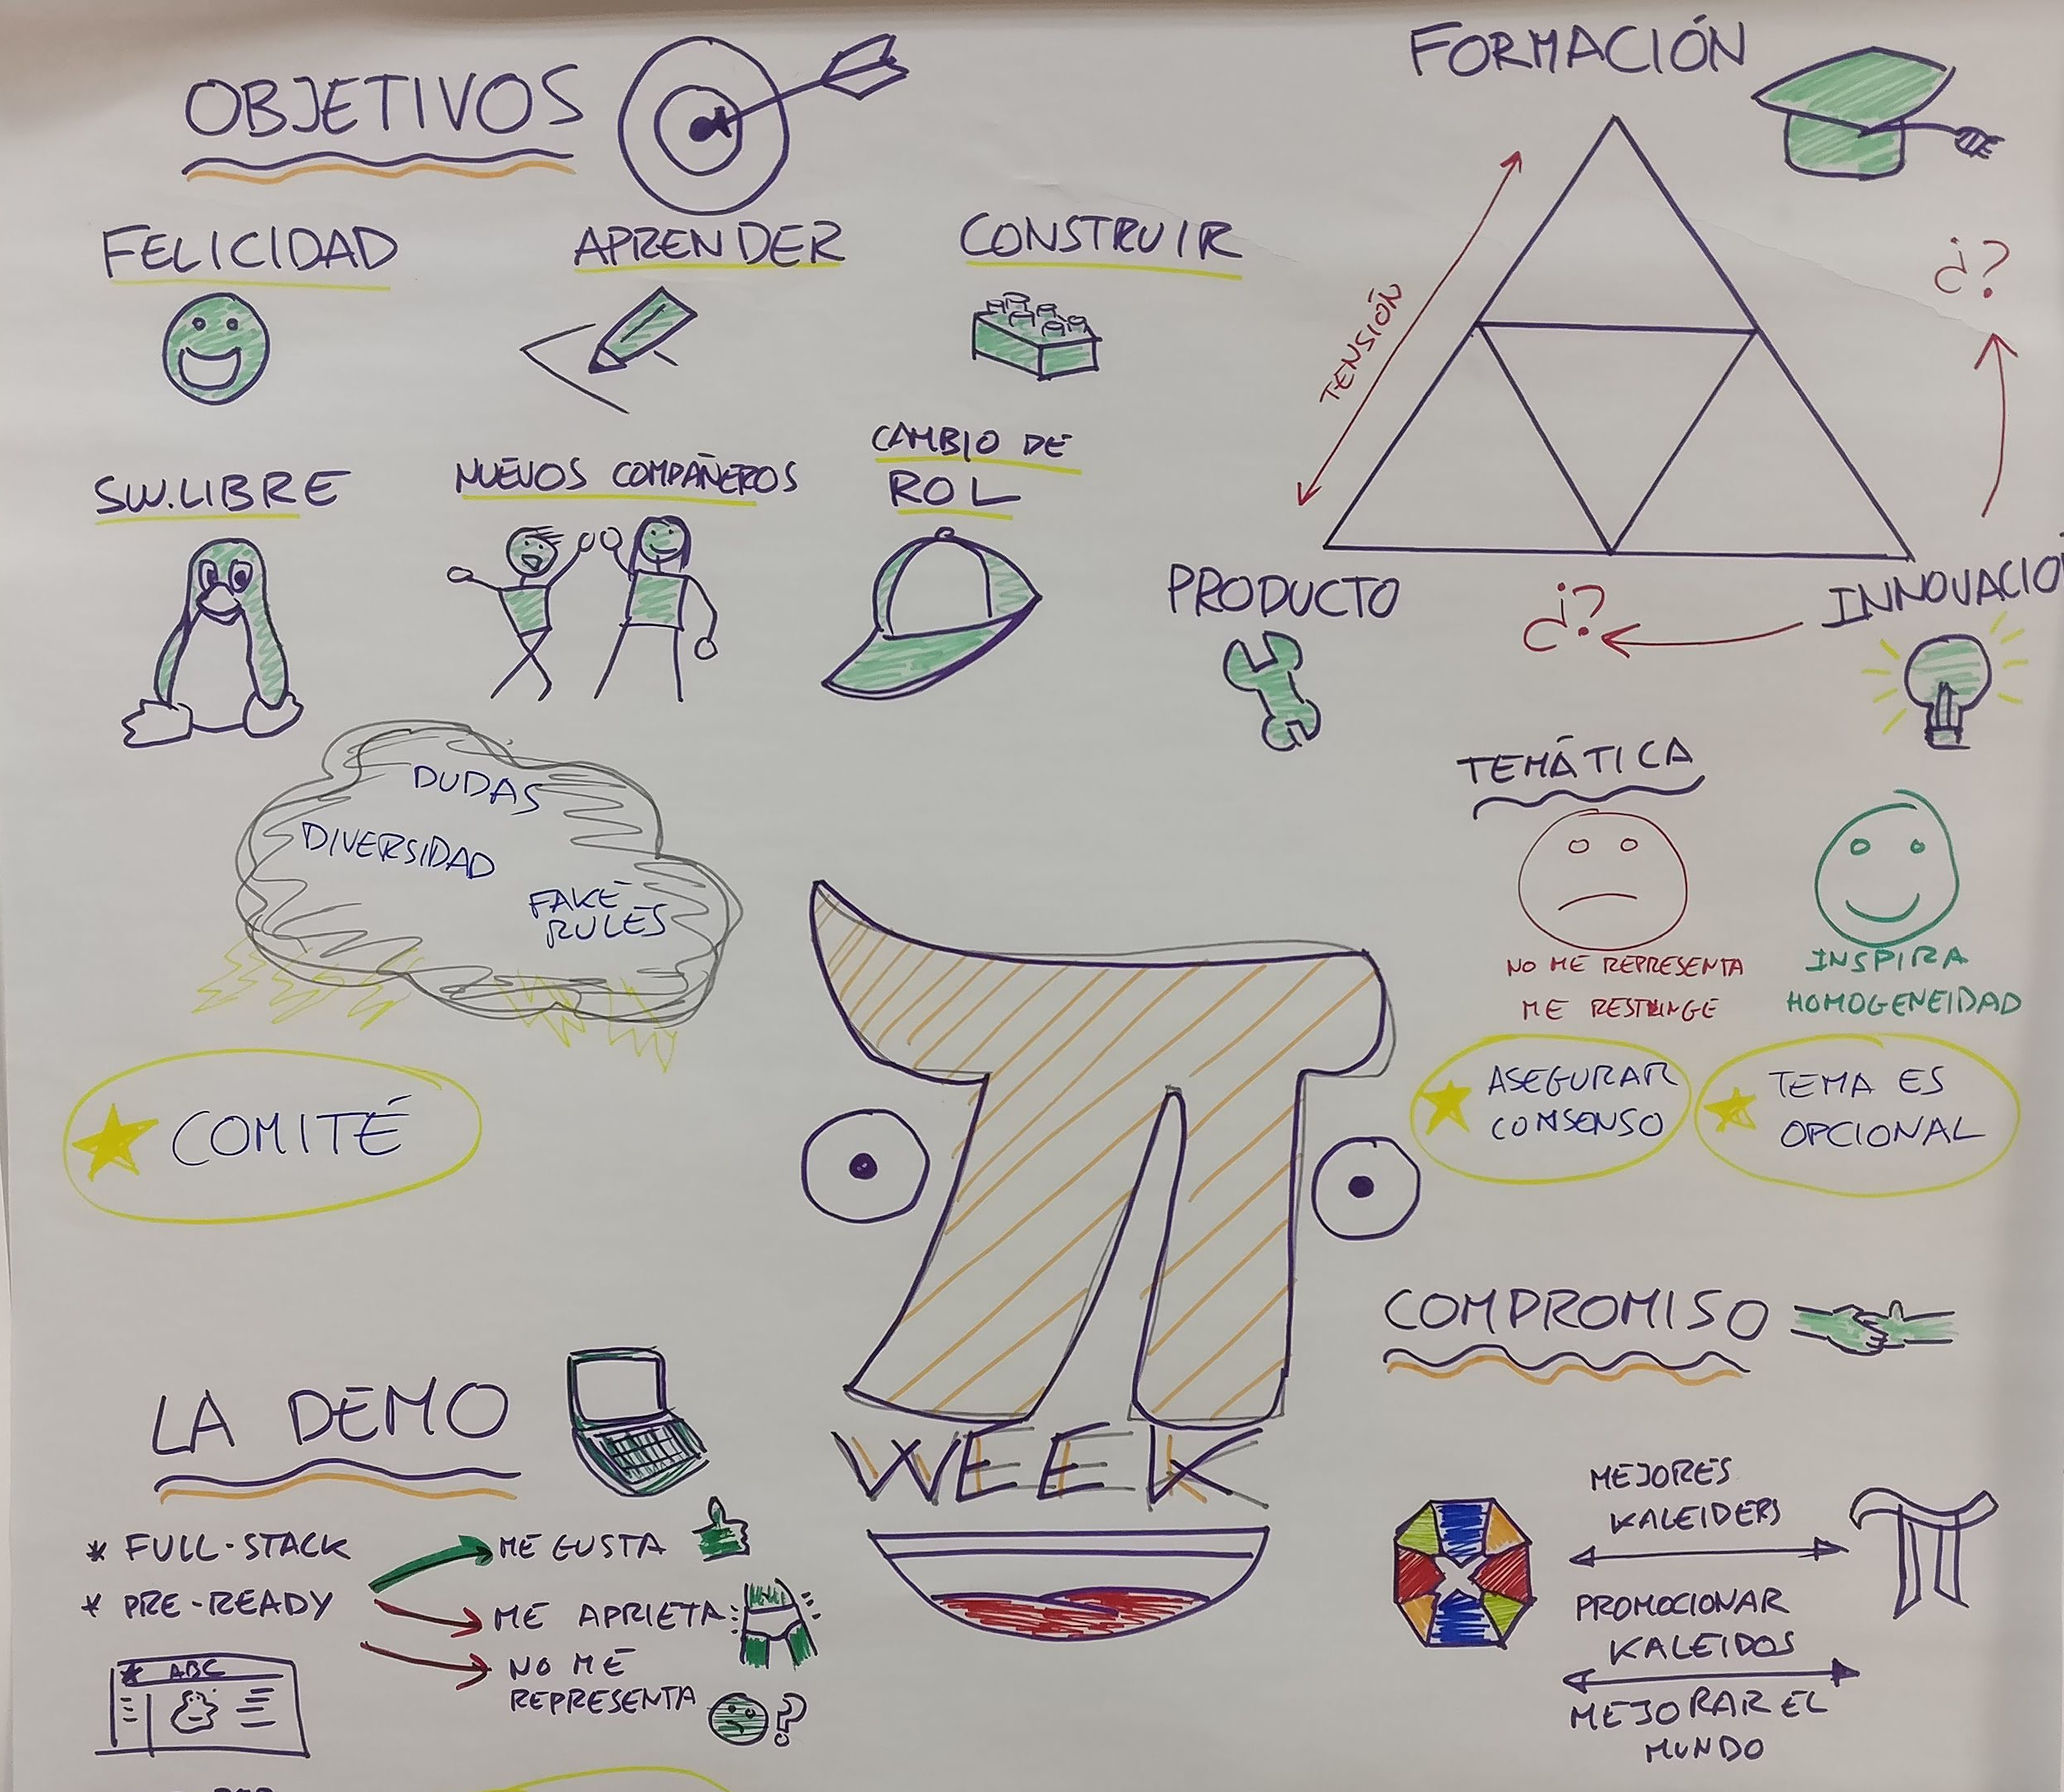 OBJETIVOS
FELICIDAD
APRENDER
CONSTRUIR
SW.LIBRE
NUEVOS COMPAÑEROS
CAMBIO DE
ROL
FORMACIÓN
TENSIÓN
¿?
PRODUCTO
¿?
INNOVACIÓ
DUDAS
DIVERSIDAD
FAKE
RULES
COMITÉ
TEMÁTICA
NO ME REPRESENTA
ME RESTRINGE
INSPIRA
HOMOGENEIDAD
ASEGURAR
CONSENSO
TEMA ES
OPCIONAL
π
WEEK
COMPROMISO
MEJORES
KALEIDERS
PROMOCIONAR
KALEIDOS
MEJORAR EL
MUNDO
π
LA DEMO
* FULL-STACK
* PRE-READY
ME GUSTA
ME APRIETA
NO ME
REPRESENTA
?
ABC